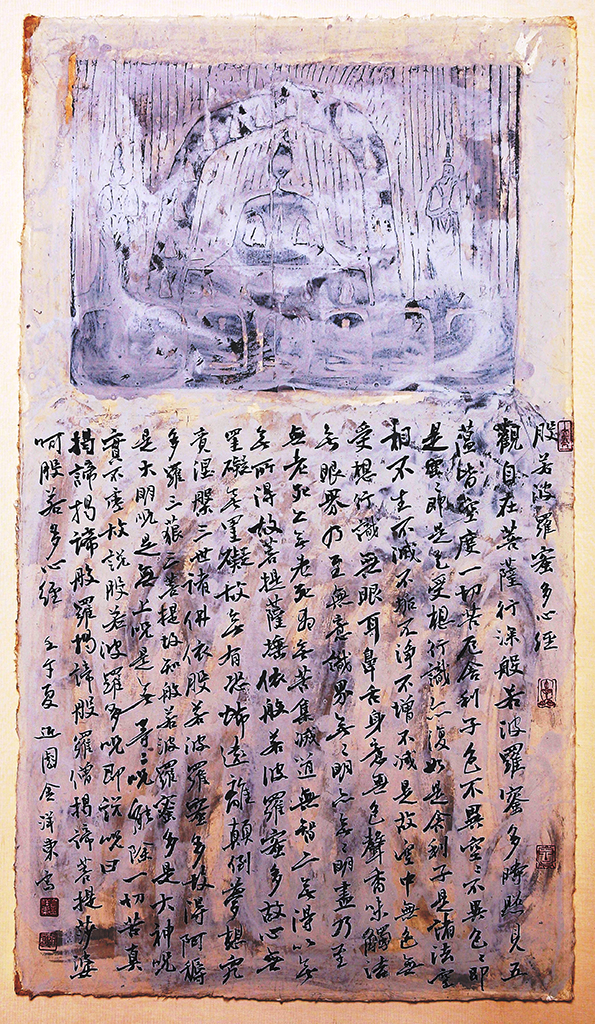 般若波羅蜜多心經
觀自在菩薩行深般若波羅蜜多時照見五
蘊皆空度一切苦厄舍利子色不異空々不異色々即
是空々即是色受想行識亦復如是舍利子是諸法空
相不生不滅不垢不淨不增不減是故空中無色無
受想行識無眼耳鼻舌身意無色聲香味觸法
無眼界乃至無意識界無々明亦無々明盡乃至
無老死亦無老死盡無苦集滅道無智亦無得以無
無所得故菩提薩埵依般若波羅蜜多故心無
罣礙無罣礙故無有恐怖遠離顛倒夢想究
竟涅槃三世諸佛依般若波羅蜜多故得阿耨
多羅三藐三菩提故知般若波羅蜜多是大神呪
是大明呪是無上呪是無等々呪能除一切苦真
實不虛故說般若波羅多呪即說呪曰
揭諦揭諦般羅揭諦般羅僧揭諦菩提莎婆
呵般若多心經 壬午夏 金洋東